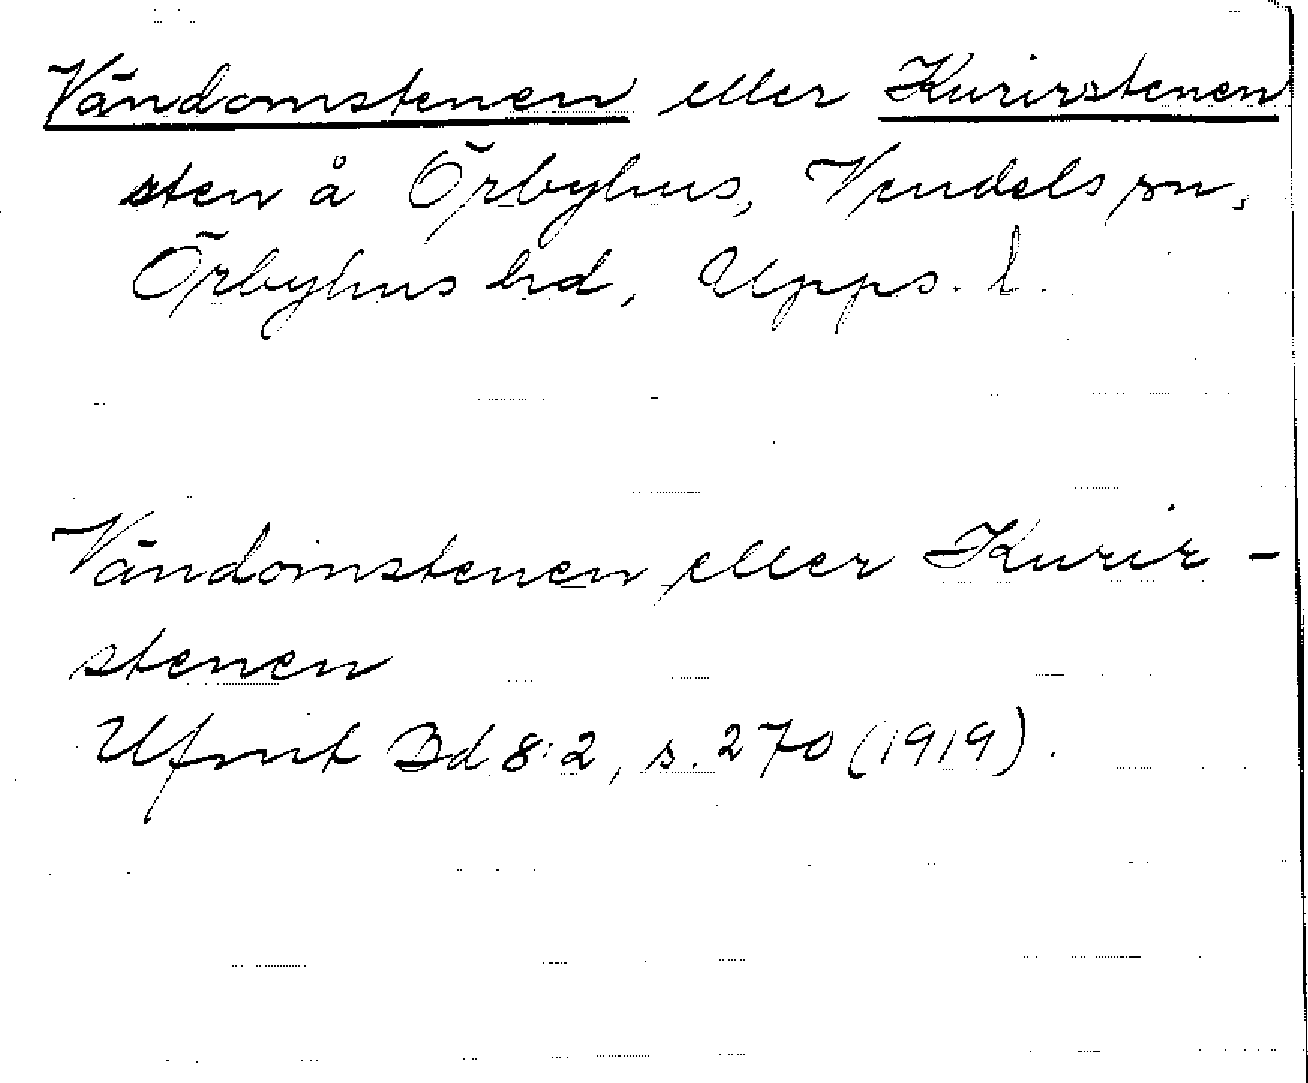 Vändomstenen eller Kurirstenen
sten å Örbyhus, Vendels sn,
Örbyhus hd, Upps. l.
Vändomstenen eller Kurir-
stenen
Ufmt Bd 8:2, s. 270 (1919).